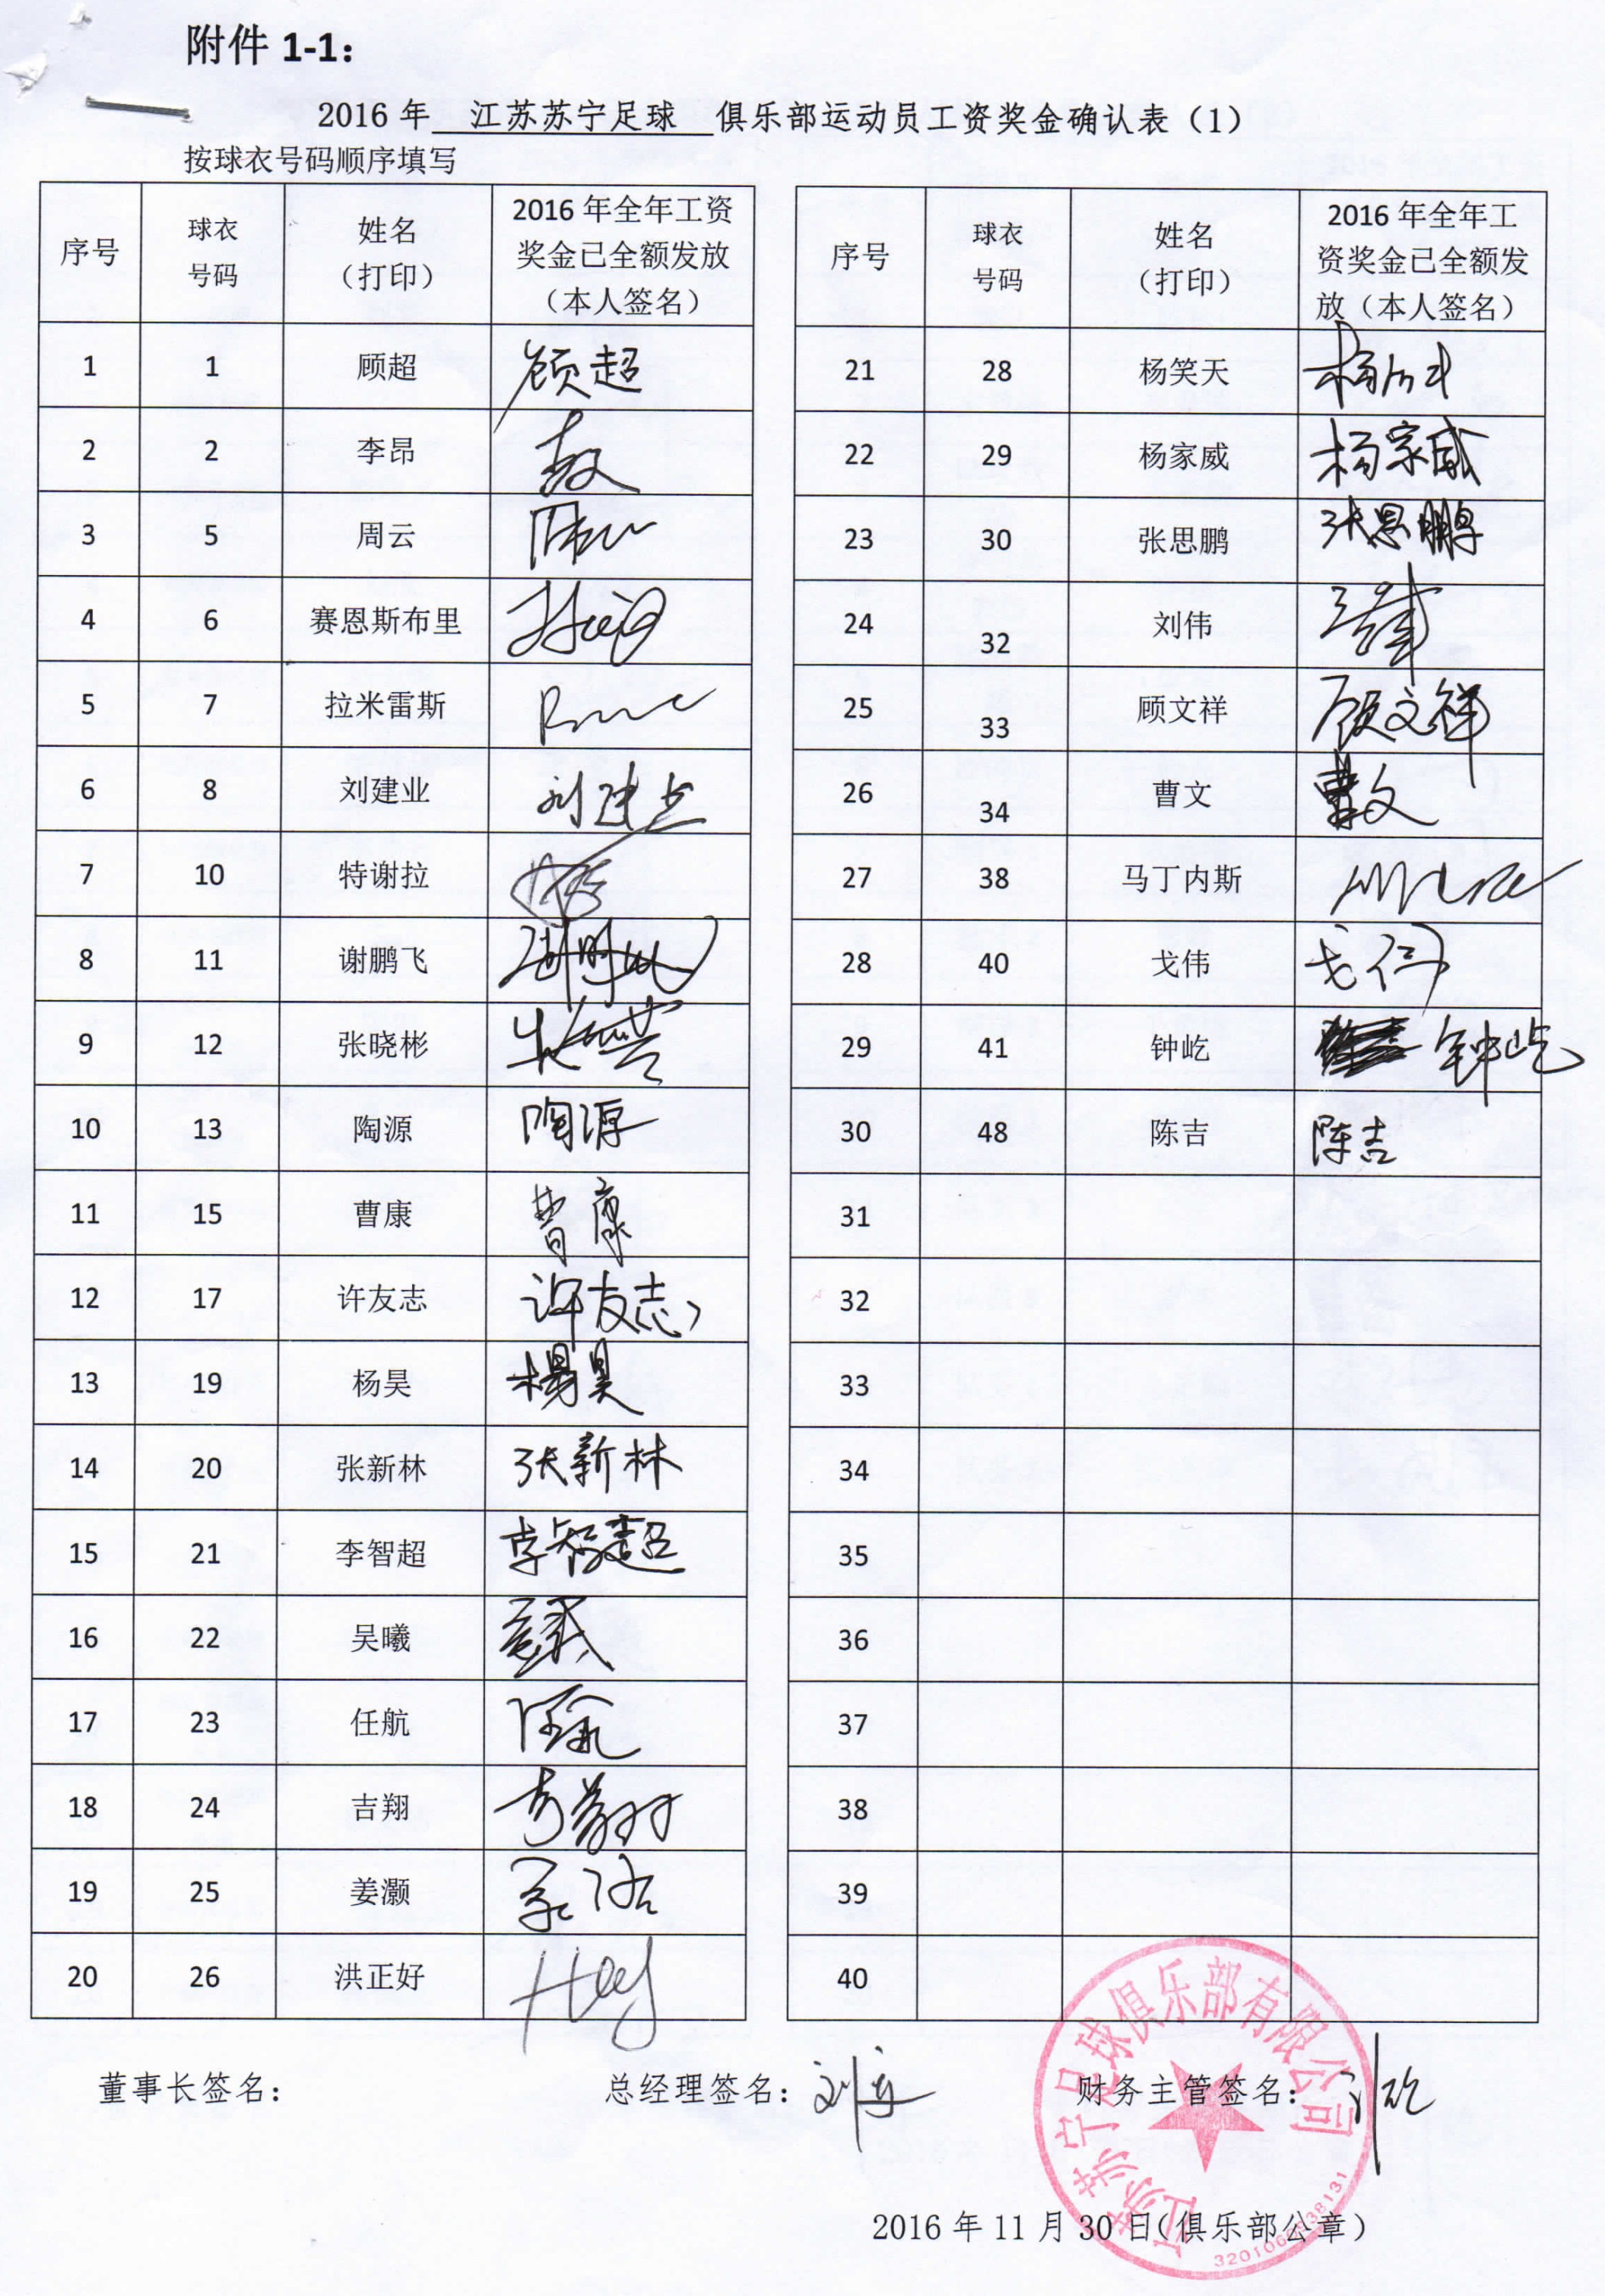 附件 1-1：
2016 年 江苏苏宁足球 俱乐部运动员工资奖金确认表（1）
按球衣号码顺序填写
序号 球衣号码 姓名（打印） 2016 年全年工资奖金已全额发放（本人签名）
1 1 顾超 顾超
2 2 李昂
3 5 周云
4 6 赛恩斯布里
5 7 拉米雷斯
6 8 刘建业 刘建业
7 10 特谢拉
8 11 谢鹏飞
9 12 张晓彬
10 13 陶源 陶源
11 15 曹康 曹康
12 17 许友志 许友志
13 19 杨昊 楊昊
14 20 张新林 张新林
15 21 李智超 李智超
16 22 吴曦
17 23 任航
18 24 吉翔 吉翔
19 25 姜灏
20 26 洪正好
序号 球衣号码 姓名（打印） 2016 年全年工资奖金已全额发放（本人签名）
21 28 杨笑天
22 29 杨家威 杨家威
23 30 张思鹏 张思鹏
24 32 刘伟
25 33 顾文祥 顾文祥
26 34 曹文 曹文
27 38 马丁内斯
28 40 戈伟 戈伟
29 41 钟屹 钟屹
30 48 陈吉 陈吉
31
32
33
34
35
36
37
38
39
40
董事长签名： 总经理签名： 财务主管签名：
江苏苏宁足球俱乐部有限公司
2016 年 11 月 30 日（俱乐部公章）